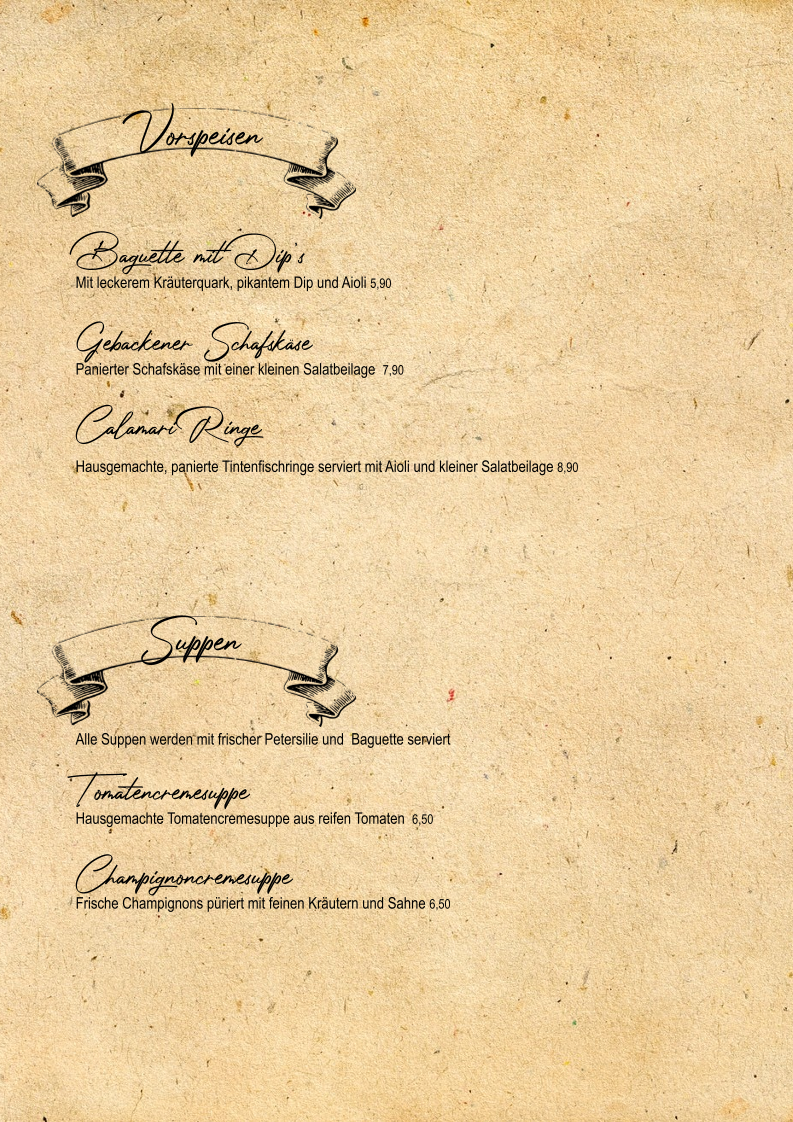 Vorspeisen
Baguette mit Dip's
Mit leckerem Kräuterquark, pikantem Dip und Aioli 5,90
Gebackener Schafskäse
Panierter Schafskäse mit einer kleinen Salatbeilage 7,90
Calamari Ringe
Hausgemachte, panierte Tintenfischringe serviert mit Aioli und kleiner Salatbeilage 8,90
Suppen
Alle Suppen werden mit frischer Petersilie und Baguette serviert
Tomatencremesuppe
Hausgemachte Tomatencremesuppe aus reifen Tomaten 6,50
Champignoncremesuppe
Frische Champignons püriert mit feinen Kräutern und Sahne 6,50